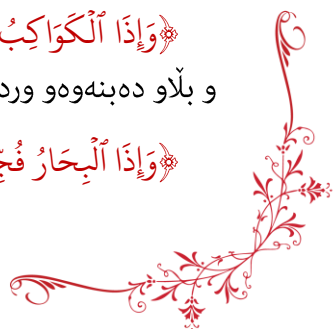 ﴿وَإِذَا ٱلْكَوَاكِبُ
و بڵاو دەبنەوەو ورد
﴿وَإِذَا ٱلْبِحَارُ فُجِّ